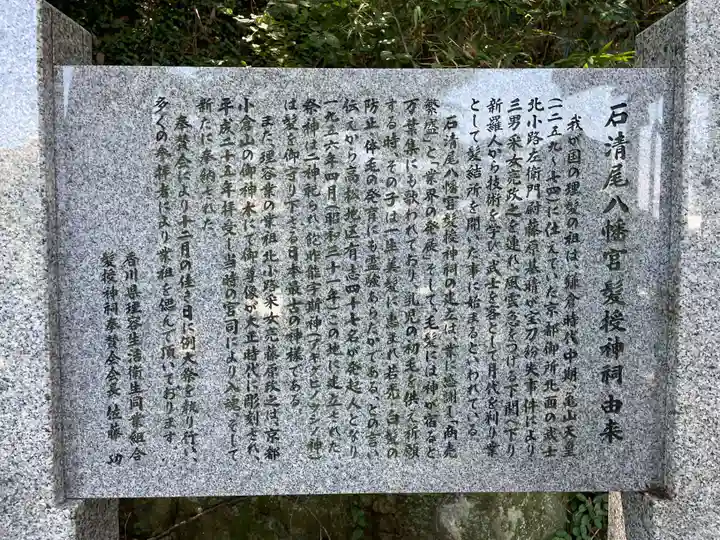 石清尾八幡宮髪授神祠由来
我が国の理髪の祖は、鎌倉時代中期、亀山天皇
(一二五九〜七四)に仕えていた京都御所北面の武士
北小路左衛門尉藤原基晴が宝刀紛失事件により
三男采女亮政之を連れ、風雲急をつげる下関へ下り
新羅人から技術を学び、武士を客として月代を剃り業
として髪結所を開いた事に始まるといわれている。
石清尾八幡宮髪授神祠の建立は、業に感謝し「商売
繁盛」と「業界の発展」そして「毛髪には神が宿ると
万葉集にも歌われており、乳児の初毛を供え祈願
する時、その子は一生美髪に恵まれ若禿、白髪の
防止、体毛の発育にも霊験あらたかである」との言い
伝えから高松地区有志四十七名が発起人となり
一九五六年四月(昭和三十一年)この地に建立された。
祭神は二神祀られ、飽咋能宇斯神(アキグヒノウシノ神)
は髪を御守り下さる日本最古の神様である。
また理容業の業祖北小路采女亮藤原政之は、京都
小倉山の御神木にて御尊像が大正時代に彫刻され、
平成二十五年拝受し当時の宮司により入魂をして
新たに奉納された。
奉賛会により十二月の佳き日に例大祭を執り行い、
多くの参拝者により業祖を偲んで頂いております。
香川県理容生活衛生同業組合
髪授神祠奉賛会会長 佐藤 功